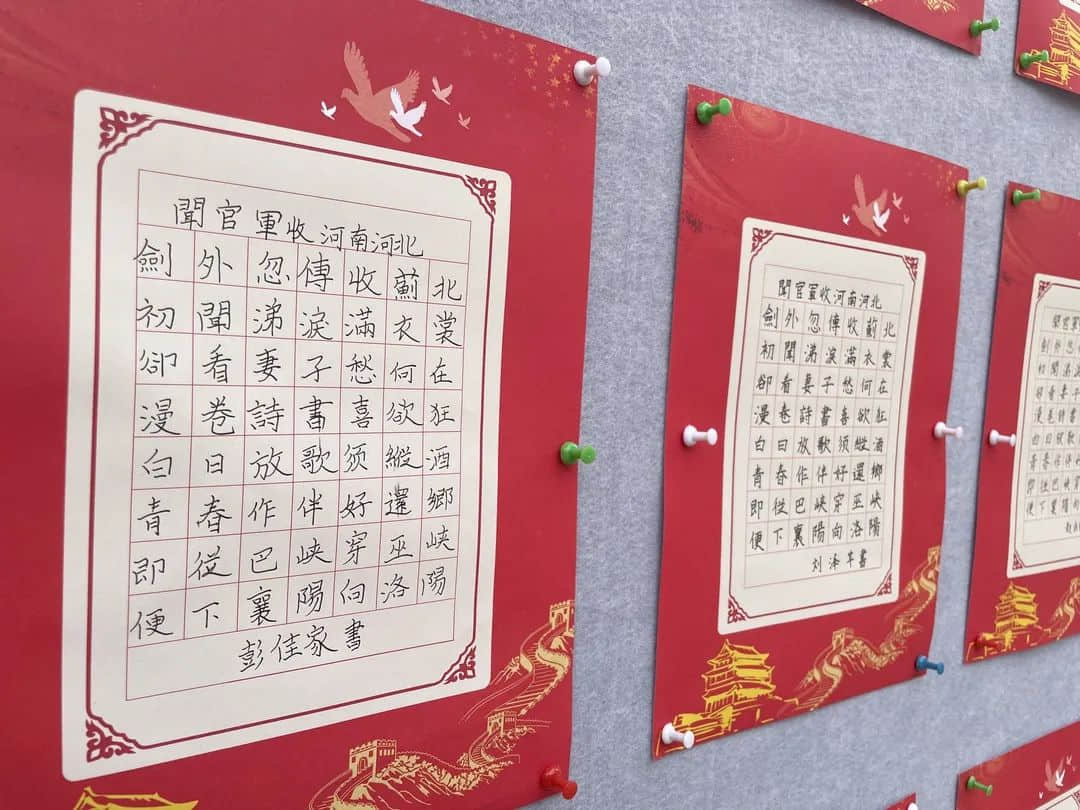 聞官軍收河南河北
劍外忽傳收薊北
初聞涕淚滿衣裳
卻看妻子愁何在
漫卷詩書喜欲狂
白日放歌须縱酒
青春作伴好還鄉
即從巴峽穿巫峽
便下襄陽向洛陽
彭佳家書
聞官軍收河南河北
劍外忽傳收薊北
初聞涕淚滿衣裳
卻看妻子愁何在
漫卷詩書喜欲狂
白日放歌须縱酒
青春作伴好還鄉
即從巴峽穿巫峽
便下襄陽向洛陽
刘泽芊書
聞官軍
劍外忽
初聞涕
卻看妻子
漫卷詩書
白日放歌
青春作伴
即從巴
便下襄陽向